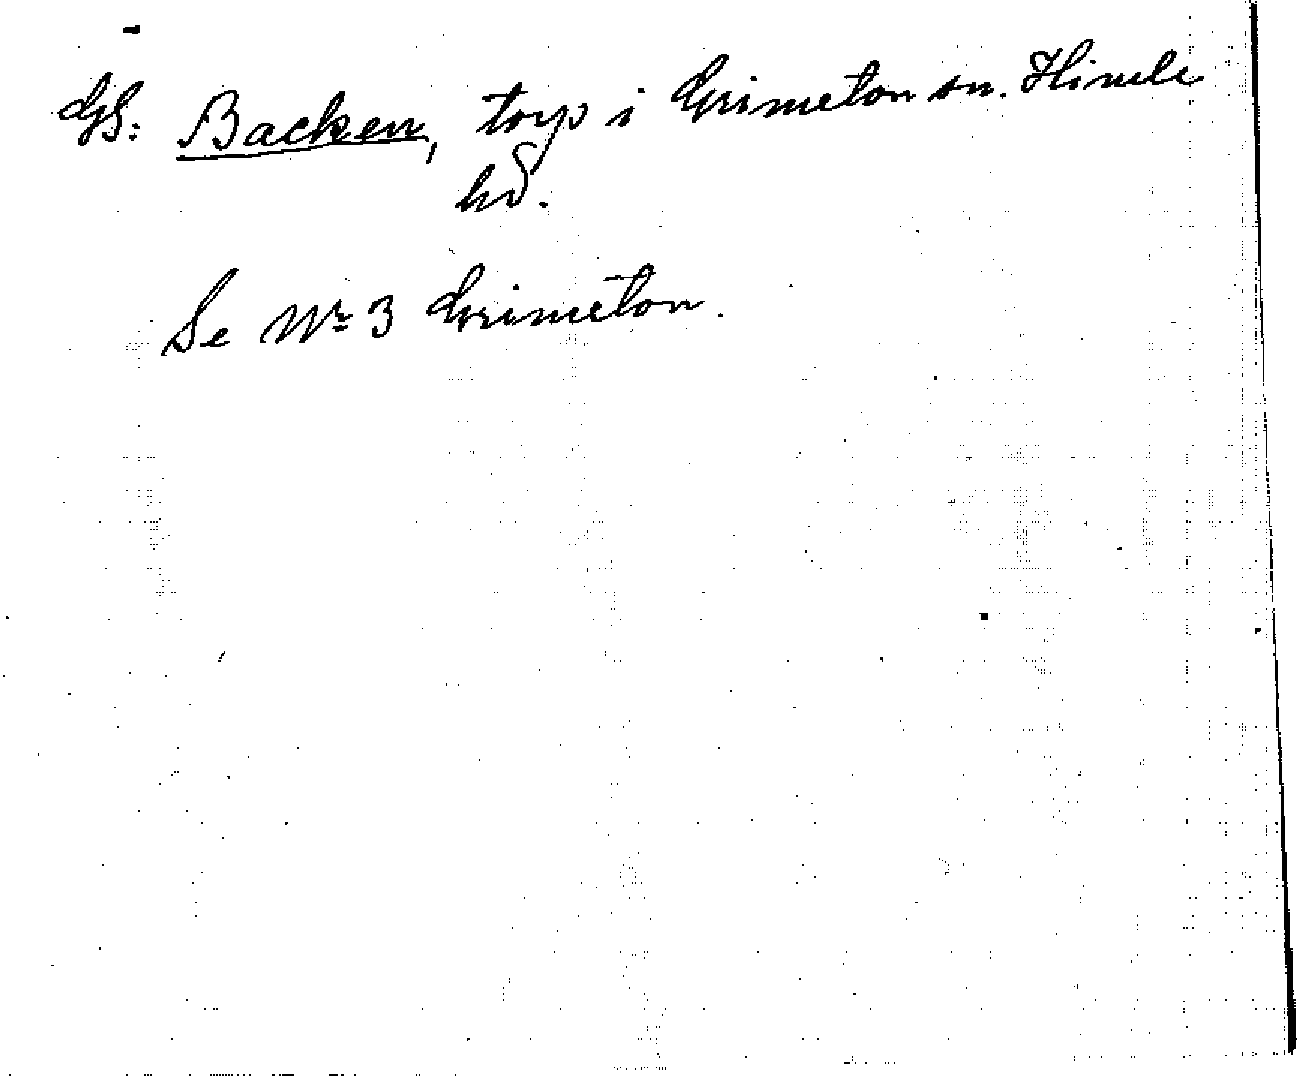 GS: Backen, torp i Grimeton sn. Himle
hd.
Se Nr 3 Grimeton.